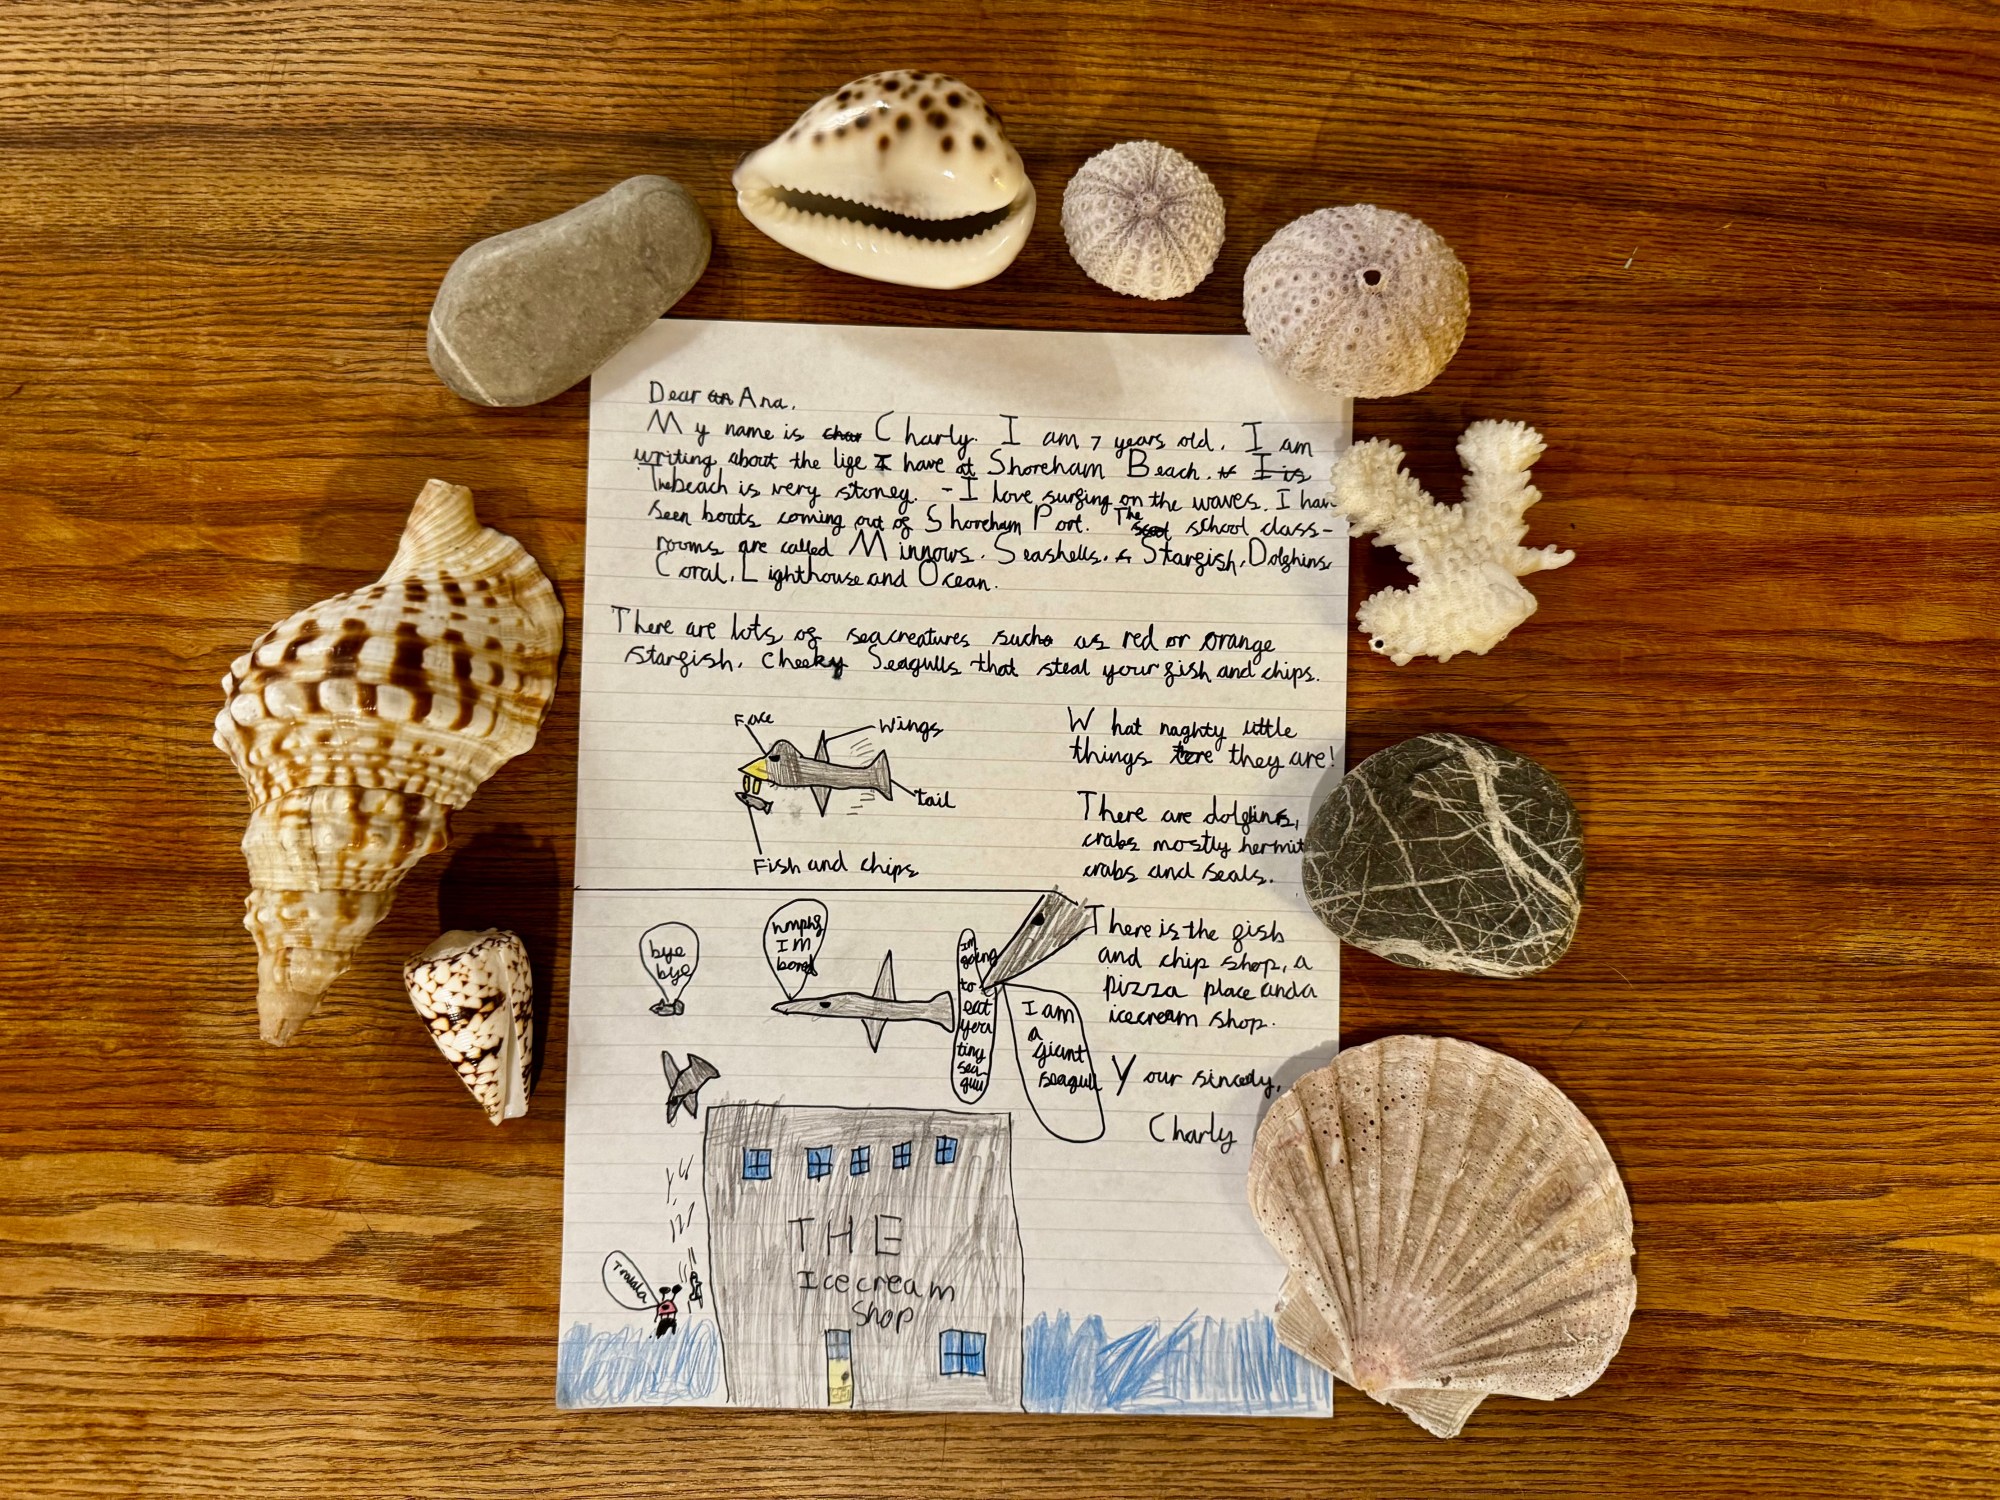 Dear an Ana,
My name is char Charly. I am 7 years old. I am
writing about the life I have at Shoreham Beach. I is
The beach is very stoney. - I love surfing on the waves. I have
seen boats coming out of Shoreham Port. The school class-
rooms are called Minnows. Seashells. Starfish, Dolphins,
Coral, Lighthouse and Ocean.
There are lots of seacreatures such as red or orange
starfish. Cheeky Seagulls that steal your fish and chips.
Face
Wings
tail
Fish and chips
What naghty little
things they are!
There are dolphins,
crabs mostly hermit
crabs and seals.
There is the fish
and chip shop, a
pizza place and a
icecream shop.
Your sincely,
Charly
bye
bye
I'm
bored
im
going
to
eat
you
tiny
sea-
gull
I am
a
giant
seagull
THE
Icecream
Shop
Tralala